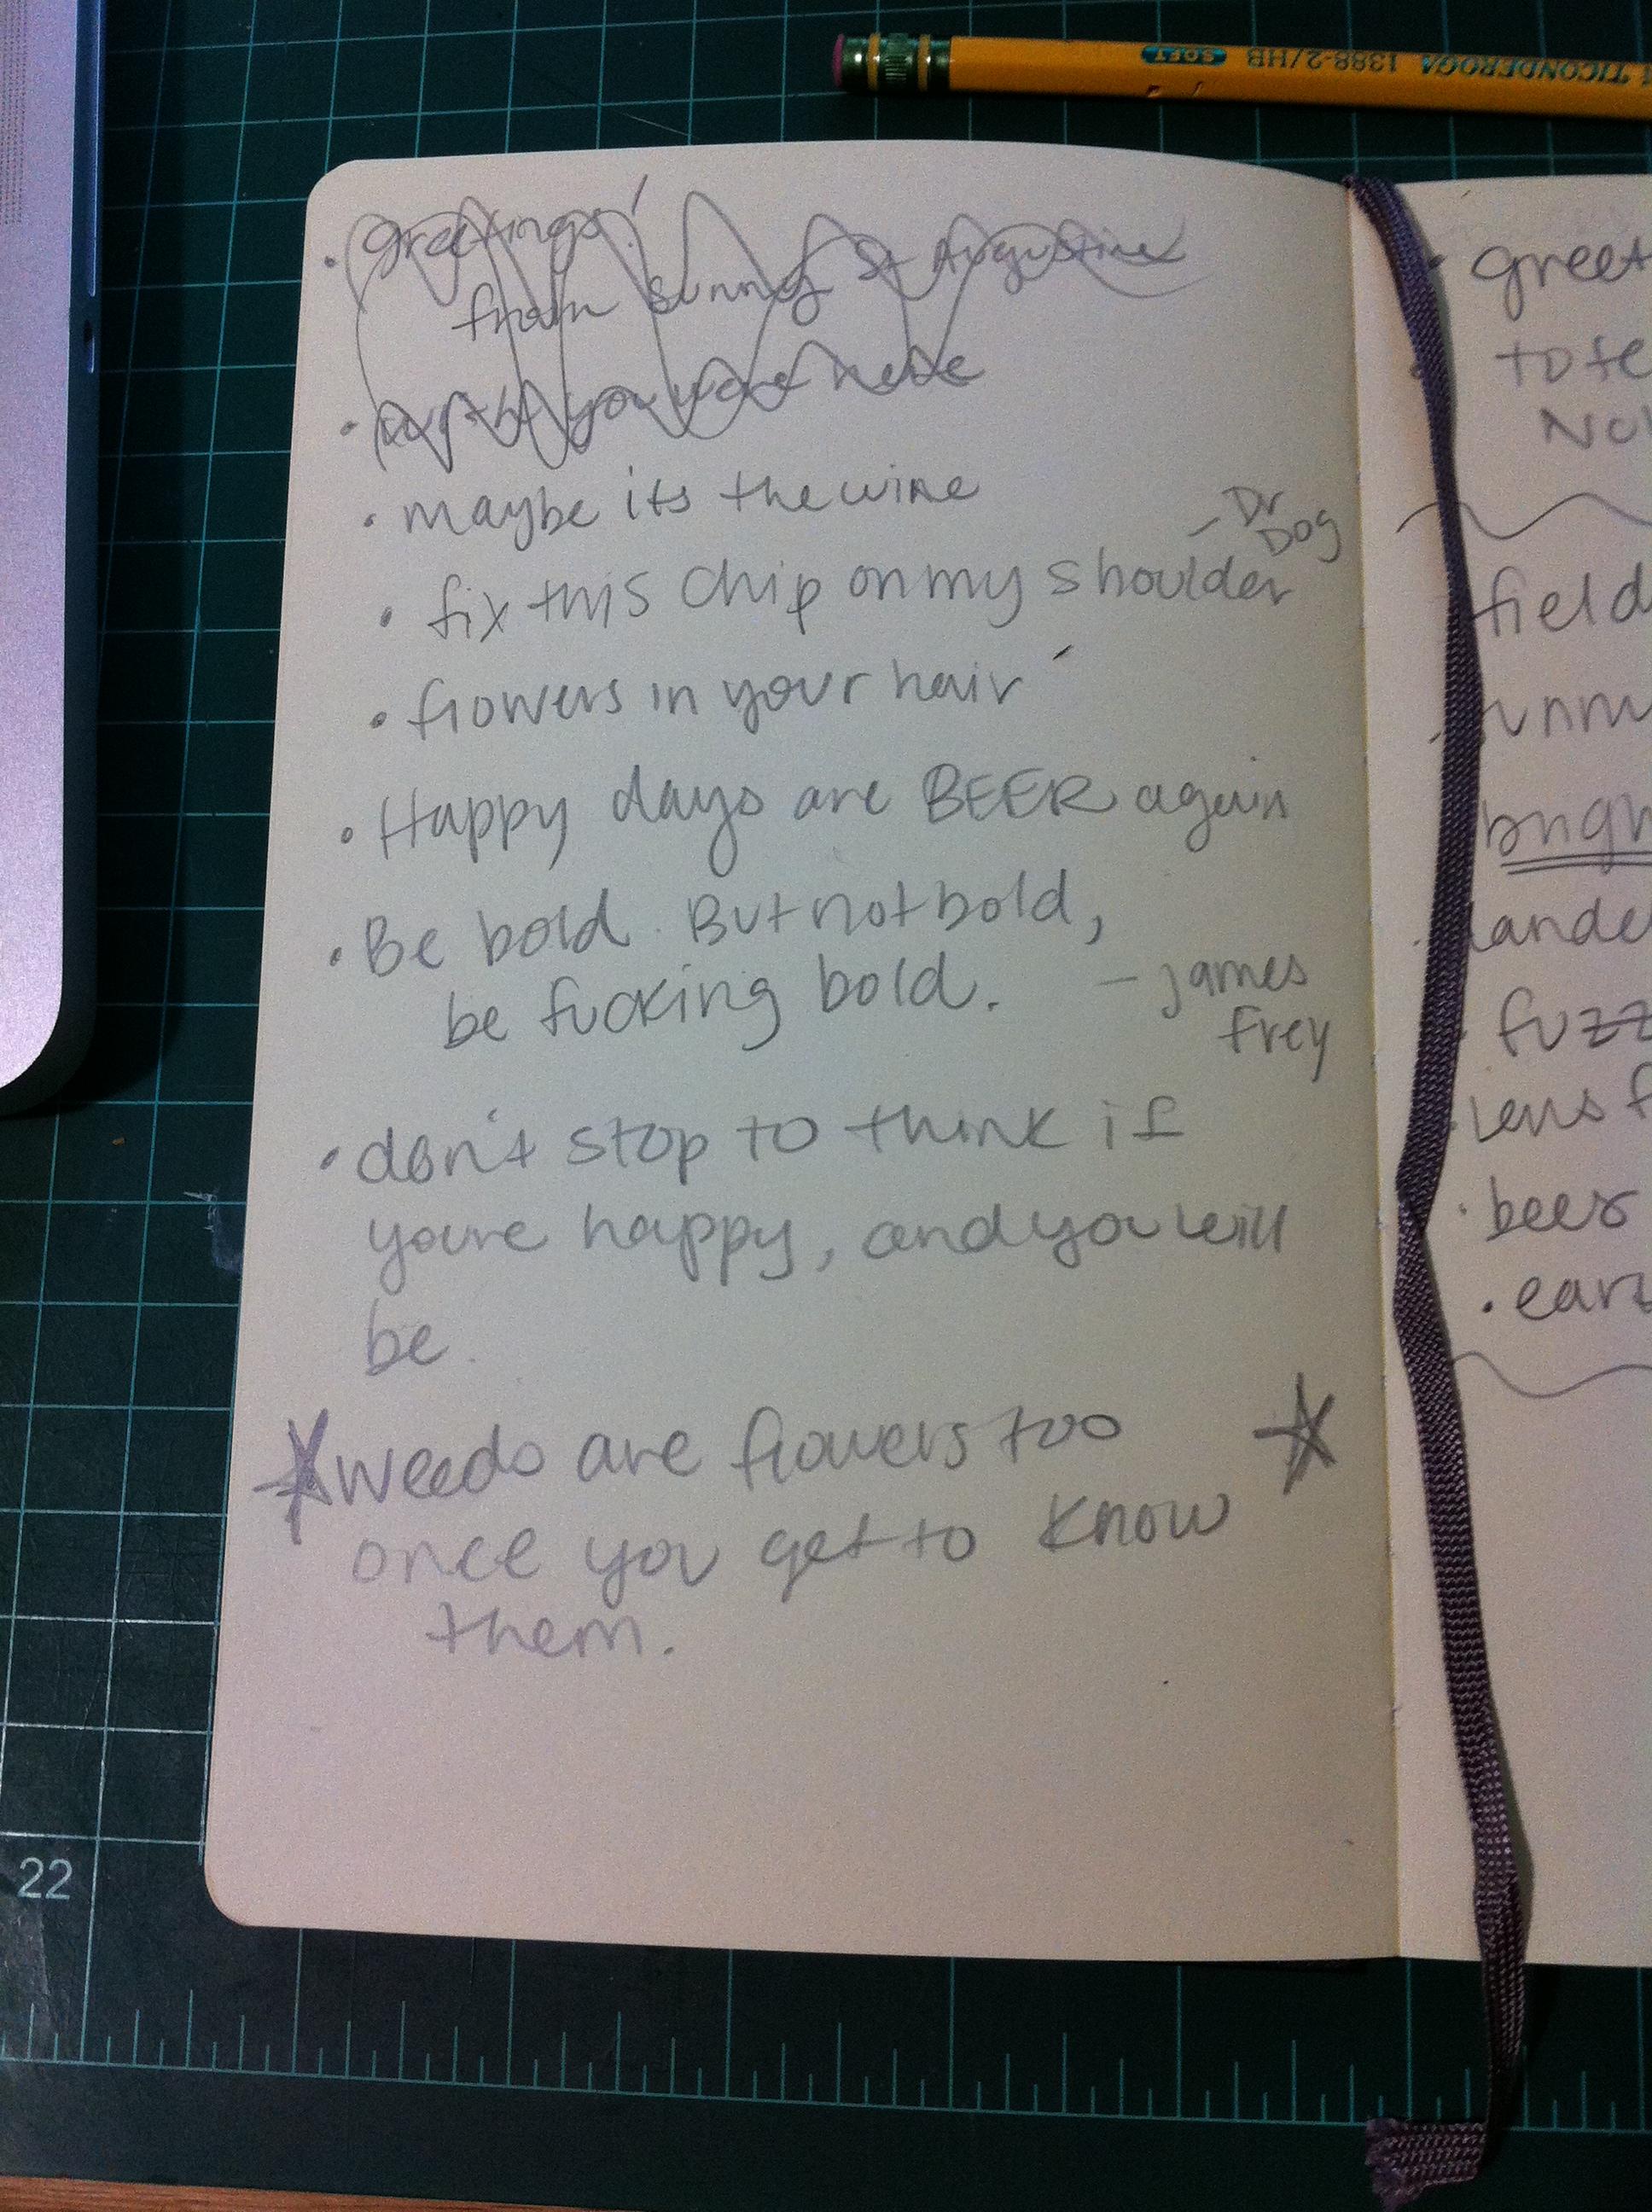 TICONDEROGA 1388-2/HB SOFT
• greetings!
from sunny St Augustine
• wish you were here
• maybe its the wine
- Dr
Dog
• fix this chip on my shoulder
• flowers in your hair
• Happy days are BEER again
• Be bold. But not bold,
be fucking bold.
- james
frey
• don't stop to think if
youre happy, and you will
be.
☆ weeds are flowers too ☆
once you get to know
them.
• greet
to te
No
field
unn
brigh
lande
• fuzz
• lens f
• beer
• ear
22